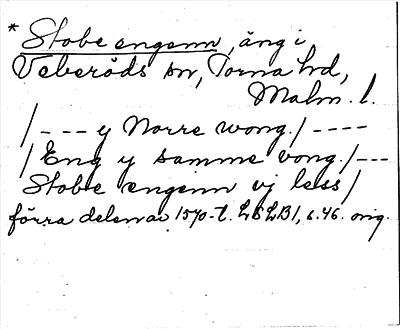 * Stobe engenn, äng i
Veberöds sn, Torna hd,
Malm. l.
/--- y Norre wong./----
/Eng y samme vong./---
Stobe engenn vj less/
förra delen av 1570-t. LSLB1, s.46. orig.